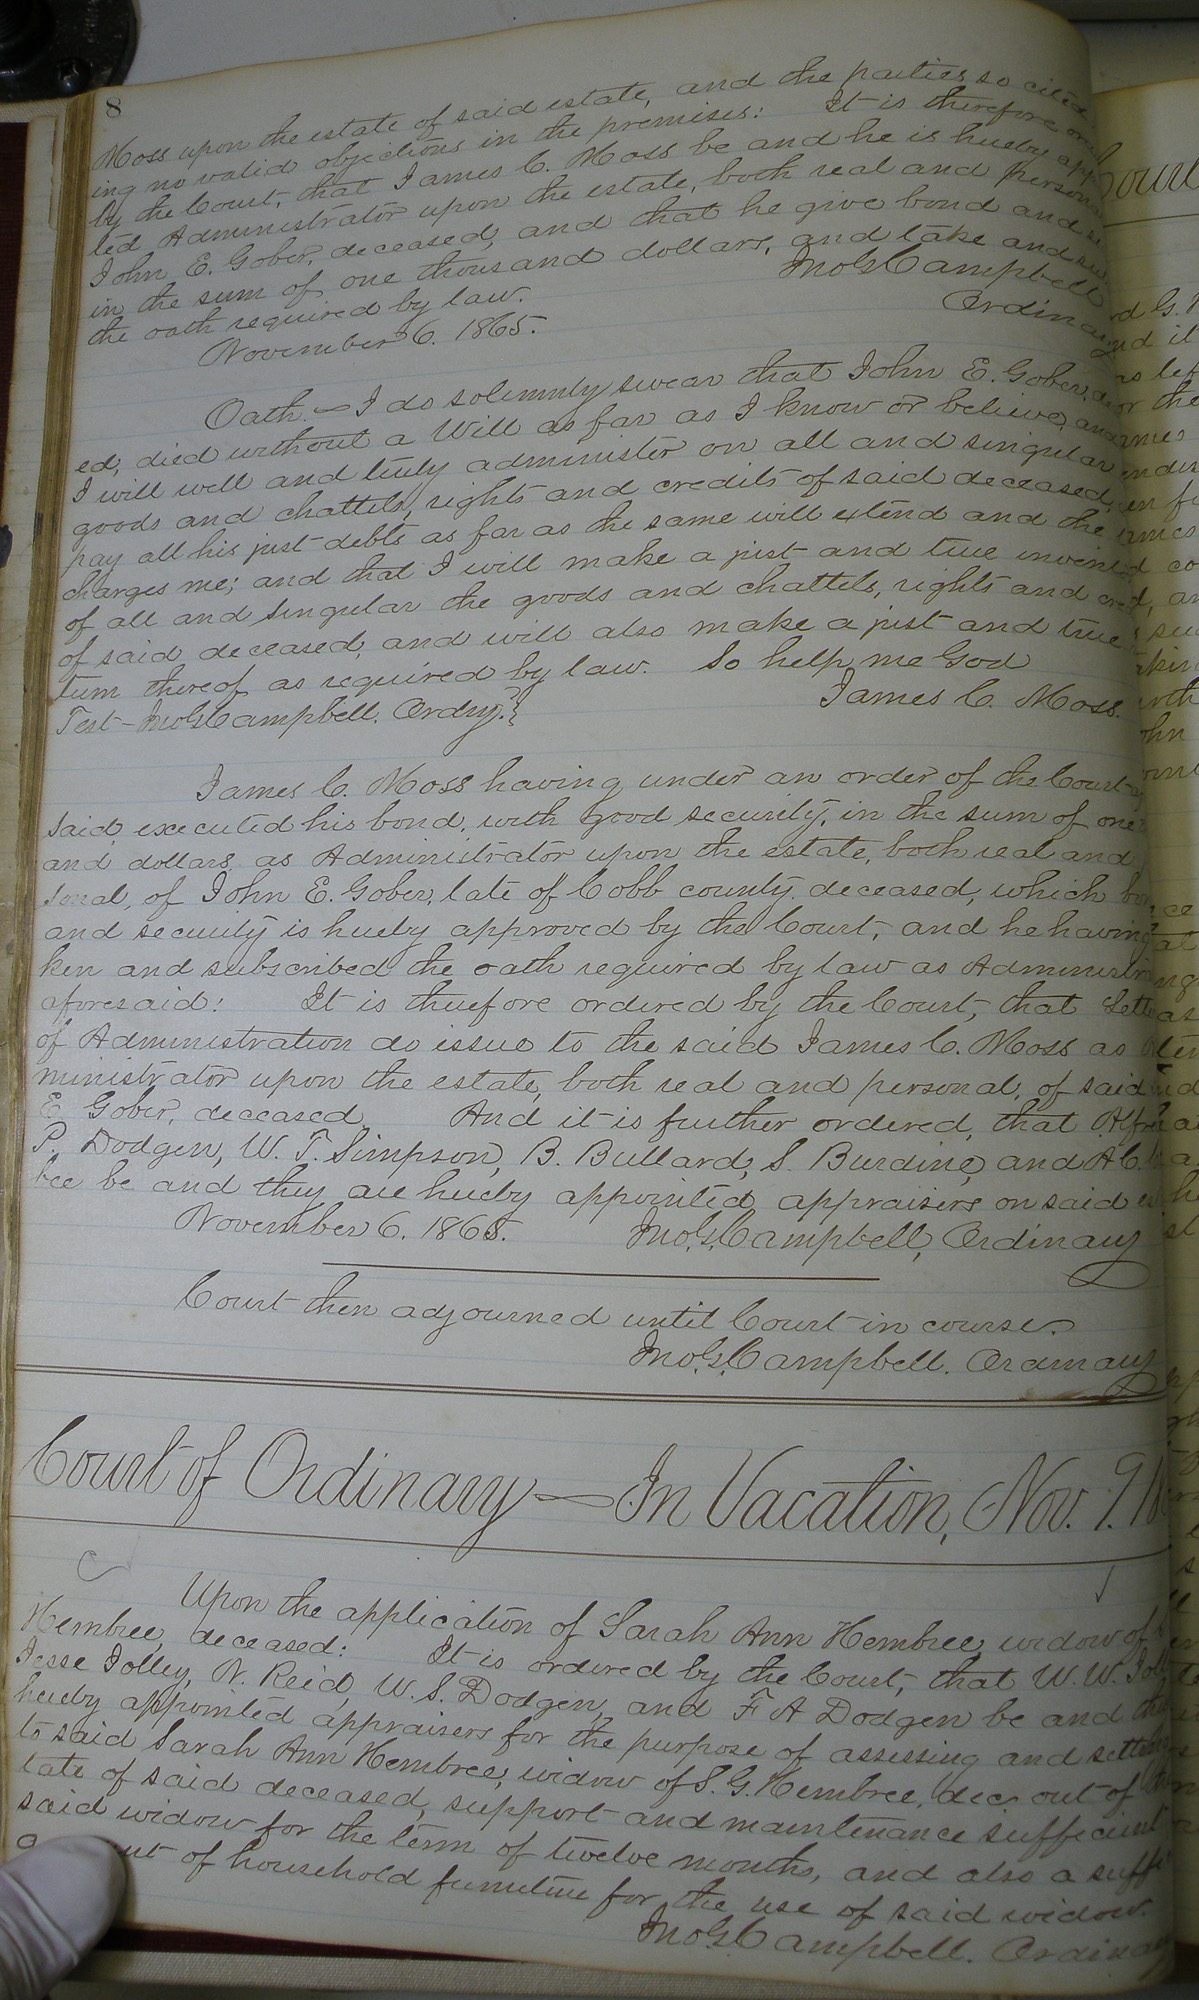 8
Moss upon the estate of said estate, and the parties so cited
ing no valid objections in the premises: It is therefore or
by the Court, that James C. Moss be and he is hereby app
ted Administrator upon the estate, both real and person
John E. Gober, deceased, and that he give bond and se
in the sum of one thousand dollars, and take and su
the oath required by law. Jno. G. Campbell
November 6. 1865. Ordinary
Oath.— I do solemnly swear that John E. Gober, de
ed, died without a Will as far as I know or believe, and
I will well and truly administer on all and singular
goods and chattels, rights and credits of said deceased,
pay all his just debts as far as the same will extend and the
charges me; and that I will make a just and true invent
of all and singular the goods and chattels, rights and cre
of said deceased, and will also make a just and true
turn thereof as required by law. So help me God
Test— Jno. G. Campbell, Ordry.} James C. Moss.
James C. Moss having under an order of the Court
said, executed his bond, with good security, in the sum of one
and dollars, as Administrator upon the estate, both real and
sonal, of John E. Gober, late of Cobb county, deceased, which bo
and security is hereby approved by the Court, and he having
ken and subscribed the oath required by law as Administr
aforesaid: It is therefore ordered by the Court, that Lette
of Administration do issue to the said James C. Moss as
ministrator upon the estate, both real and personal, of said
E. Gober, deceased. And it is further ordered, that Alfre
P. Dodgen, W. T. Simpson, B. Bullard, S. Burdine, and A. C.
bee be and they are hereby appointed appraisers on said es
November 6. 1865. Jno. G. Campbell, Ordinary
Court then adjourned until Court in course.
Jno. G. Campbell. Ordinary
Court of Ordinary — In Vacation, Nov. 9. 18
Upon the application of Sarah Ann Hembree, widow of
Hembree, deceased: It is ordered by the Court, that W. W. Joll
Jesse Jolley, N. Reid, W. S. Dodgen, and F. A Dodgen be and the
hereby appointed appraisers for the purpose of assessing and setting
to said Sarah Ann Hembree, widow of S. G. Hembree, dec. out of
tate of said deceased, support and maintenance sufficient
said widow for the term of twelve months, and also a suffi
of household furniture for the use of said widow.
Jno. G. Campbell. Ordinary